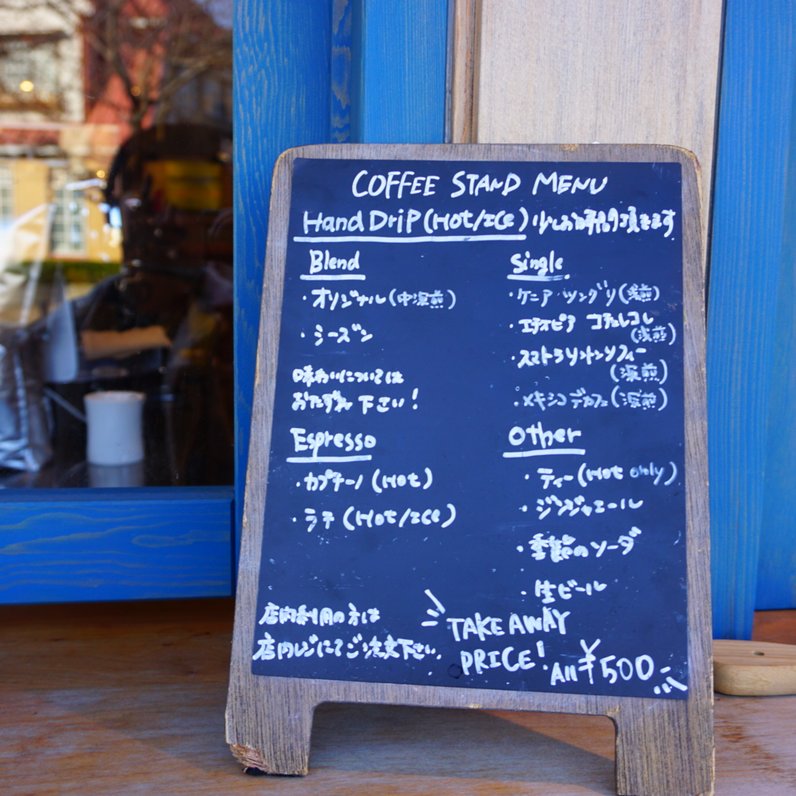 COFFEE STAND MENU
Hand Drip (Hot/ICE) 少しお時間頂きます
Blend
・オリジナル(中深煎)
・シーズン
味わいについては
おたずね下さい!
Single
・ケニア ツングリ(浅煎)
・エチオピア コチャレコレ
(浅煎)
・スマトラ リントン
(深煎)
・メキシコ デカフェ(深煎)
Espresso
・カプチーノ(Hot)
・ラテ(Hot/ICE)
Other
・ティー(Hot only)
・ジンジャエール
・季節のソーダ
・生ビール
店内利用の方は
店内レジにてご注文下さい。
TAKE AWAY
PRICE! All ¥500